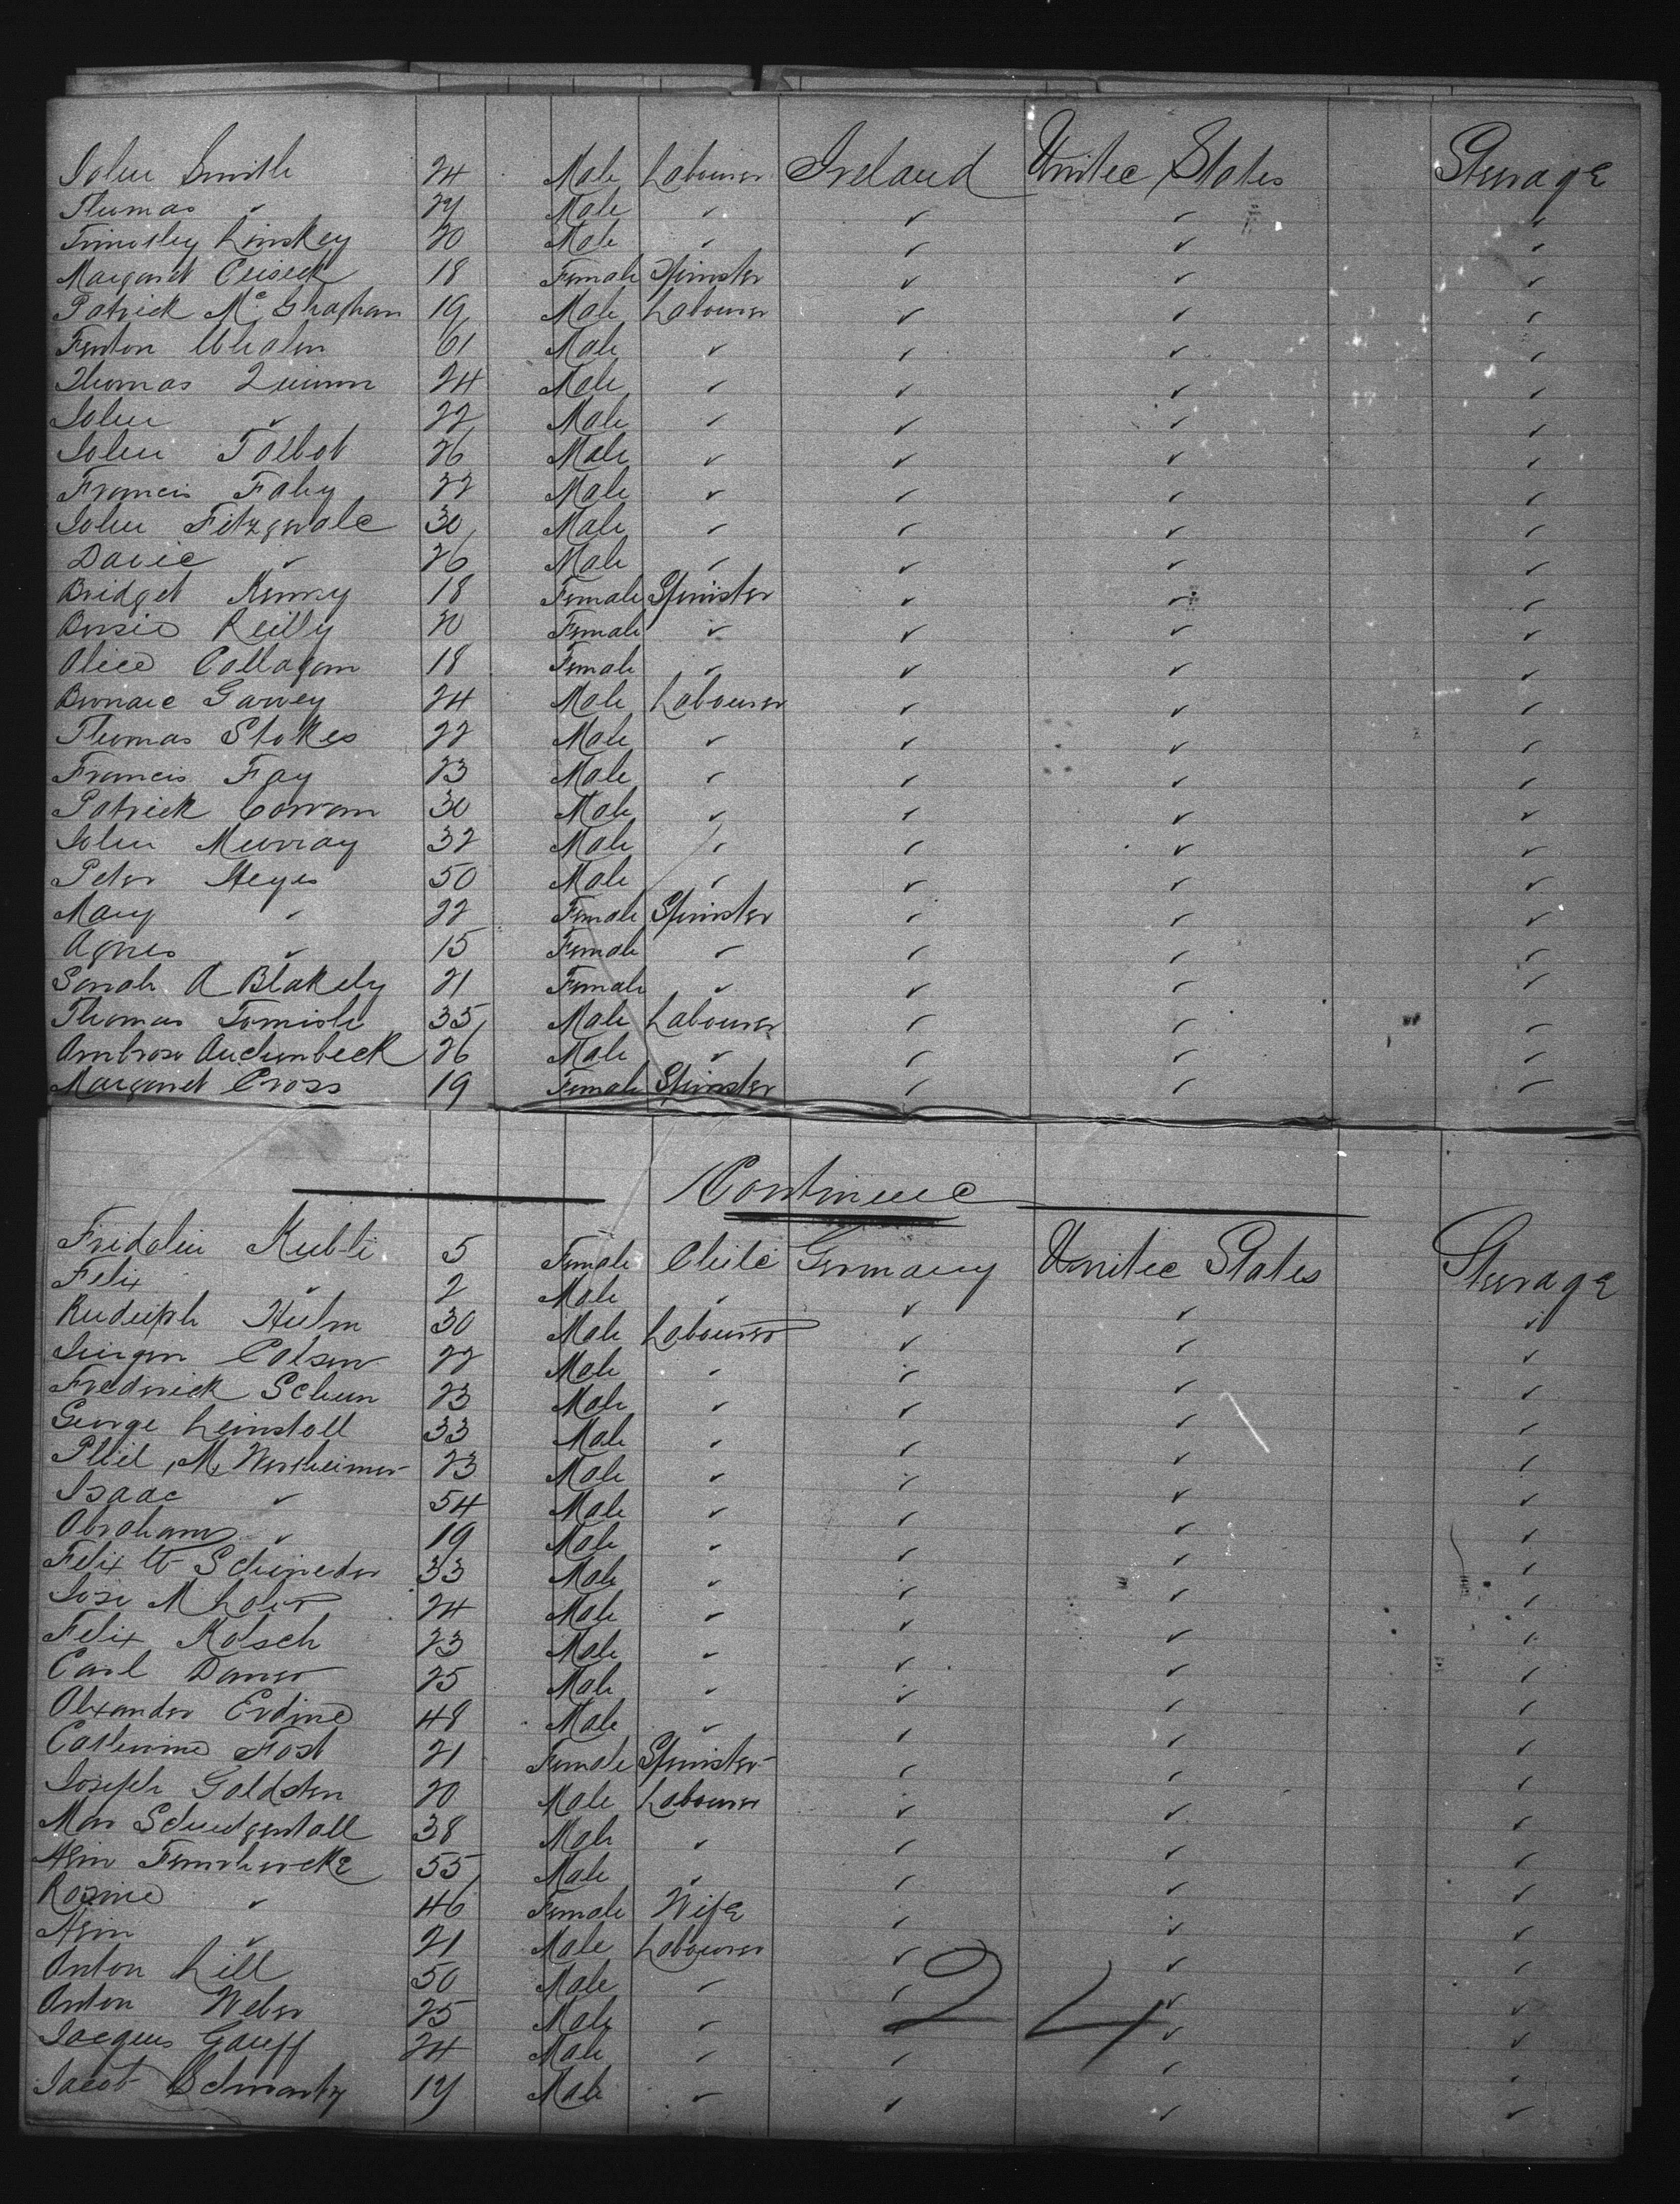 John Smith 24 Male Labourer Ireland United States Steerage
Thomas ✓ 27 Male ✓ ✓ ✓ ✓
Timothy Linskey 20 Male ✓ ✓ ✓ ✓
Margaret 18 Female Spinster ✓ ✓ ✓
Patrick Mc 19 Male Labourer ✓ ✓ ✓
Fenton Whalen 61 Male ✓ ✓ ✓ ✓
Thomas Quinn 24 Male ✓ ✓ ✓ ✓
John ✓ 22 Male ✓ ✓ ✓ ✓
John Talbot 26 Male ✓ ✓ ✓ ✓
Francis Fahy 22 Male ✓ ✓ ✓ ✓
John Fitzgerald 30 Male ✓ ✓ ✓ ✓
David ✓ 26 Male ✓ ✓ ✓ ✓
Bridget Kenny 18 Female Spinster ✓ ✓ ✓
Bessie Reilly 20 Female ✓ ✓ ✓ ✓
Alice Callagan 18 Female ✓ ✓ ✓ ✓
Bernard Garvey 24 Male Labourer ✓ ✓ ✓
Thomas Stokes 22 Male ✓ ✓ ✓ ✓
Francis Fay 23 Male ✓ ✓ ✓ ✓
Patrick Corran 30 Male ✓ ✓ ✓ ✓
John Murray 32 Male ✓ ✓ ✓ ✓
Peter Heyes 50 Male ✓ ✓ ✓ ✓
Mary ✓ 22 Female Spinster ✓ ✓ ✓
Agnes ✓ 15 Female ✓ ✓ ✓ ✓
Sarah A Blakely 21 Female ✓ ✓ ✓ ✓
Thomas 35 Male Labourer ✓ ✓ ✓
Ambrose Auchenbeck 26 Male ✓ ✓ ✓ ✓
Margaret Cross 19 Female Spinster ✓ ✓ ✓
Continued
Fridolin Kubli 5 Female Child Germany United States Steerage
Felix ✓ 2 Male ✓ ✓ ✓ ✓
Rudolph Hulm 30 Male Labourer ✓ ✓ ✓
Jurgen 22 Male ✓ ✓ ✓ ✓
Frederick Schun 23 Male ✓ ✓ ✓ ✓
George Leinstoll 33 Male ✓ ✓ ✓ ✓
Phil, M, Wertheimer 23 Male ✓ ✓ ✓ ✓
Isaac ✓ 54 Male ✓ ✓ ✓ ✓
Abraham ✓ 19 Male ✓ ✓ ✓ ✓
Felix W Schneider 33 Male ✓ ✓ ✓ ✓
Jose M 24 Male ✓ ✓ ✓ ✓
Felix Kolsch 23 Male ✓ ✓ ✓ ✓
Carl Daner 25 Male ✓ ✓ ✓ ✓
Alexander Erdine 48 Male ✓ ✓ ✓ ✓
Catherine Fost 21 Female Spinster ✓ ✓ ✓
Joseph Goldsten 20 Male Labourer ✓ ✓ ✓
Max 38 Male ✓ ✓ ✓ ✓
55 Male ✓ ✓ ✓ ✓
Rosine ✓ 46 Female Wife ✓ ✓ ✓
✓ 21 Male Labourer ✓ ✓ ✓
Anton Lill 50 Male ✓ ✓ ✓ ✓
Anton Weber 25 Male ✓ ✓ ✓ ✓
24
Jacques Gauff 24 Male ✓ ✓ ✓ ✓
Jacob Schwartz 17 Male ✓ ✓ ✓ ✓